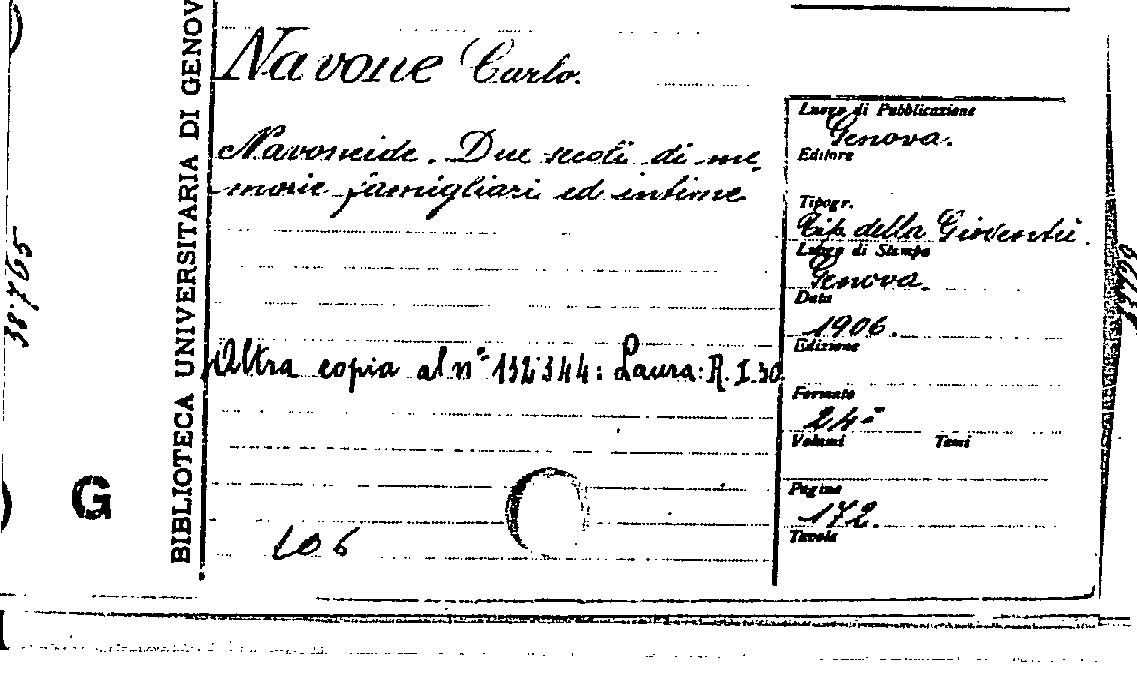 BIBLIOTECA UNIVERSITARIA DI GENOV
38765
G
Navone Carlo.
Navoneide. Due secoli di me,
morie famigliari ed intime
Altra copia al n° 132344: Laura: R. I. 30
106
Luogo di Pubblicazione
Genova.
Editore
Tipogr.
Tip. della Gioventù.
Luogo di Stampa
Genova.
Data
1906.
Edizione
Formato
24°
Volumi Tomi
Pagine
172.
Tavole